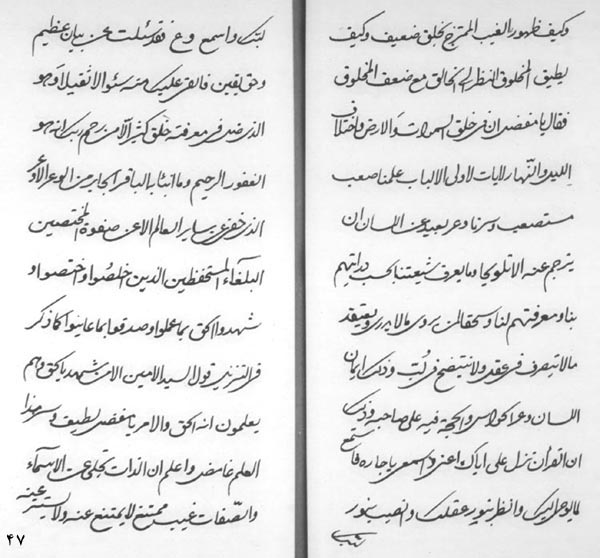 وكيف ظهور الغيب الممتزج بخلق ضعيف وكيف
يطيق المخلوق النظر الى الخالق مع ضعف المخلوق
فقال يا مفضل ان في خلق السموات والارض واختلاف
الليل والنهار لايات لاولى الالباب علمنا صعب
مستصعب وسرنا وعر بعيد عن اللسان ان
يترجم عنه الا تلويحا وما يعرف شيعتنا بحسب درايتهم
بنا ومعرفتهم لنا وسحقا لمن يروى ما لا يدرى ويعتقد
ما لا يتصرف في عقد ولا يتضح في لب وذلك ايمان
اللسان وعر الحواس والحجة فيه على صاحبه وذلك
ان القران نزل على اياك اعنى واسمعى يا جاره فاستمع
لما يوحى اليك وانظر بنور عقلك وانصت بنور
لبك
لبك واسمع وع فقد سئلت عن بيان عظيم
وحق يقين فالقى عليك من سئوالا ثقيلا وهو
الذي ضل في معرفته خلق كثير الا من رحم ربك انه هو
الغفور الرحيم وما انبئنا به الباقر الجابر من الوعر الاوعر
الذي خفى عن سائر العالم الا عن صفوة المختصين
البلغاء المستحفظين الذين اخلصوا واختصوا و
شهدوا الحق بما عملوا وصدقوا بما عاينوا كما ذكر
في التنزيل قول السيد الامين الا من شهد بالحق وهم
يعلمون انه الحق والامر يا مفضل لطيف وسر هذا
العلم غامض واعلم ان الذات تجلى عن الاسماء
والصفات غيب ممتنع لا يمتنع عنه ولا يستتر عنه
٤٧